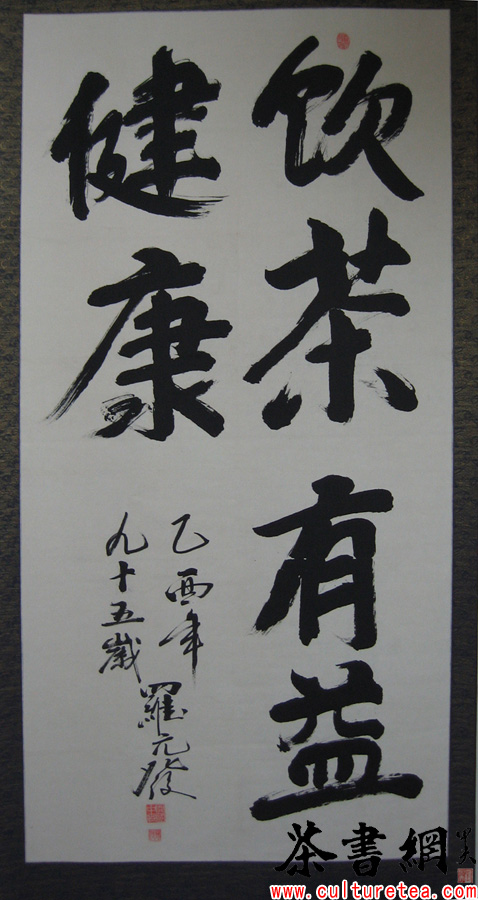 饮茶有益
健康
乙酉年
九十五歲
羅元發
茶書網
www.culturetea.com